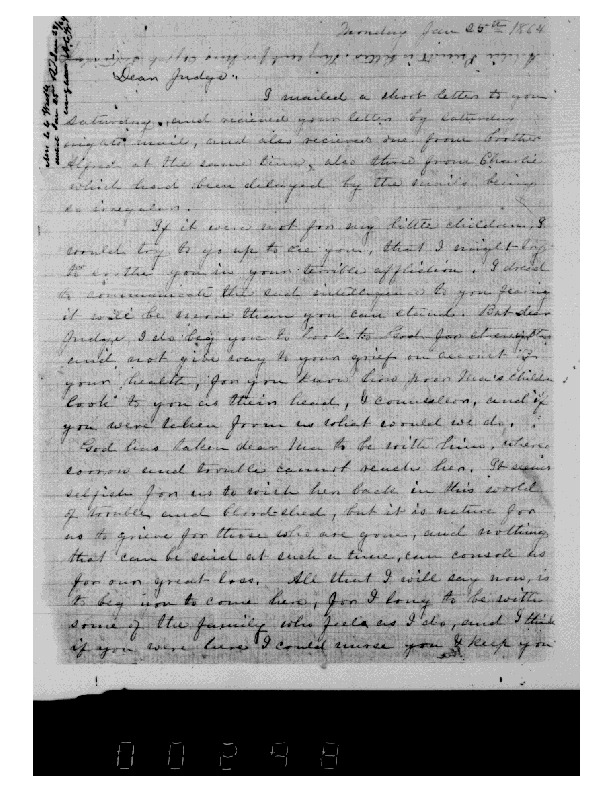 Monday Jan 25th 1864
Dear Judge,
I mailed a short letter to you
Saturday, and recieved your letter by Saturday
night's mail, and also recieved one from brother
at the same time, also three from Charlie
which had been delayed by the mails being
so irregular.
If it were not for my little children, I
would try to go up to see you, that I might try
to soothe you in your terrible affliction. I dread
to communicate the sad intelligence to you fearing
it will be more than you can stand. But dear
Judge, I do beg you to look to God for strength
and not give way to your grief on account of
your health, for you know how poor Ma's children
look to you as their head, & counselor, and if
you were taken from us what would we do.
God has taken dear Ma to be with him, where
sorrow and trouble cannot reach her. It seems
selfish for us to wish her back in this world
of trouble and blood-shed, but it is nature for
us to grieve for those who are gone, and nothing
that can be said at such a time, can console us
for our great loss. All that I will say now, is
to beg you to come here, for I long to be with
some of the family who feels as I do, and I think
if you were here I could nurse you & keep you
00298